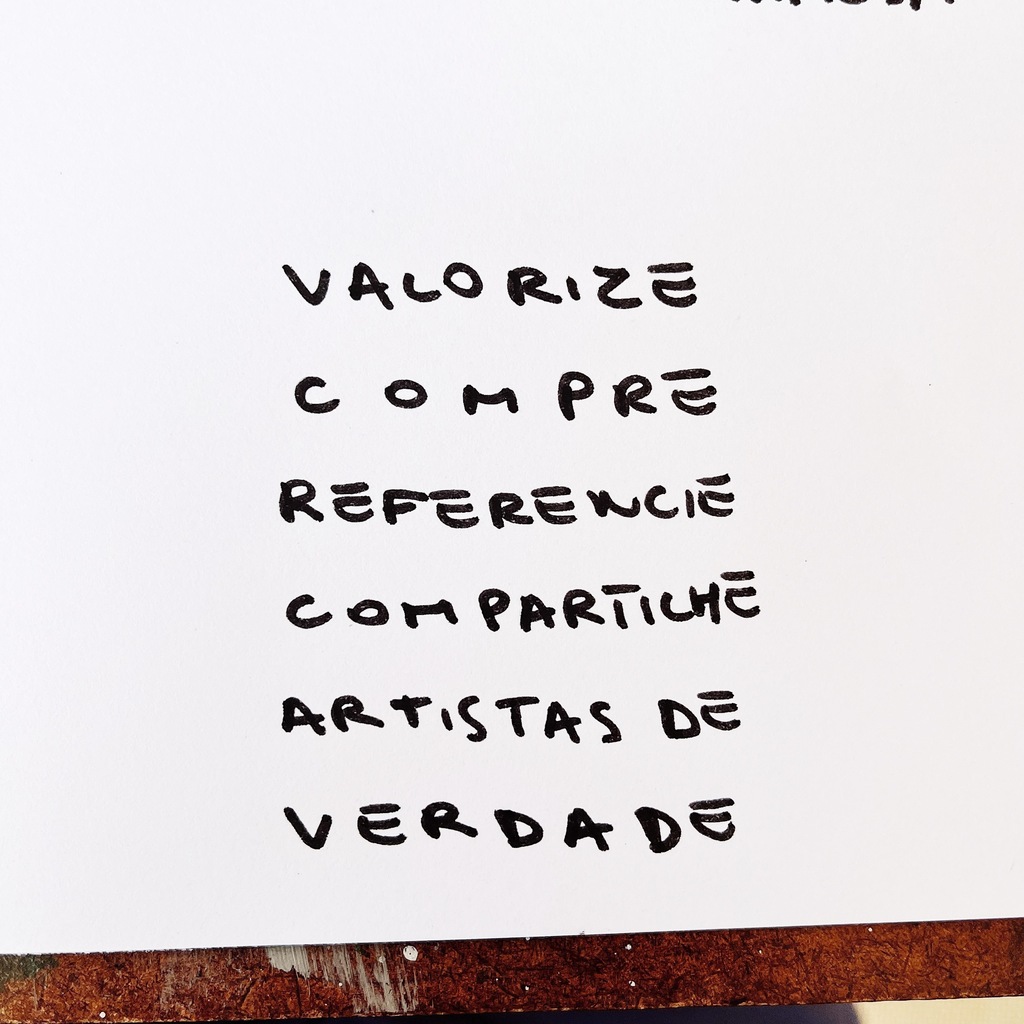 VALORIZE
COMPRE
REFERENCIE
COMPARTILHE
ARTISTAS DE
VERDADE